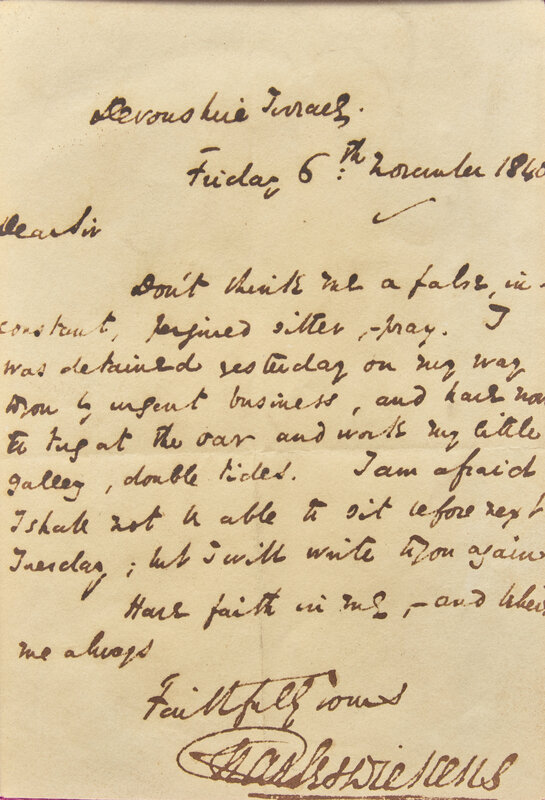 Devonshire Terrace.
Friday 6th. November 1840
Dear Sir
Don't think me a false, in-
constant, perjured sitter, – pray. I
was detained yesterday on my way
to you by urgent business, and have now
to tug at the oar and work my little
galley, double tides. I am afraid
I shall not be able to sit before next
Tuesday; but I will write to you again
Have faith in me, – and believe
me always
Faithfully Yours
Charles Dickens